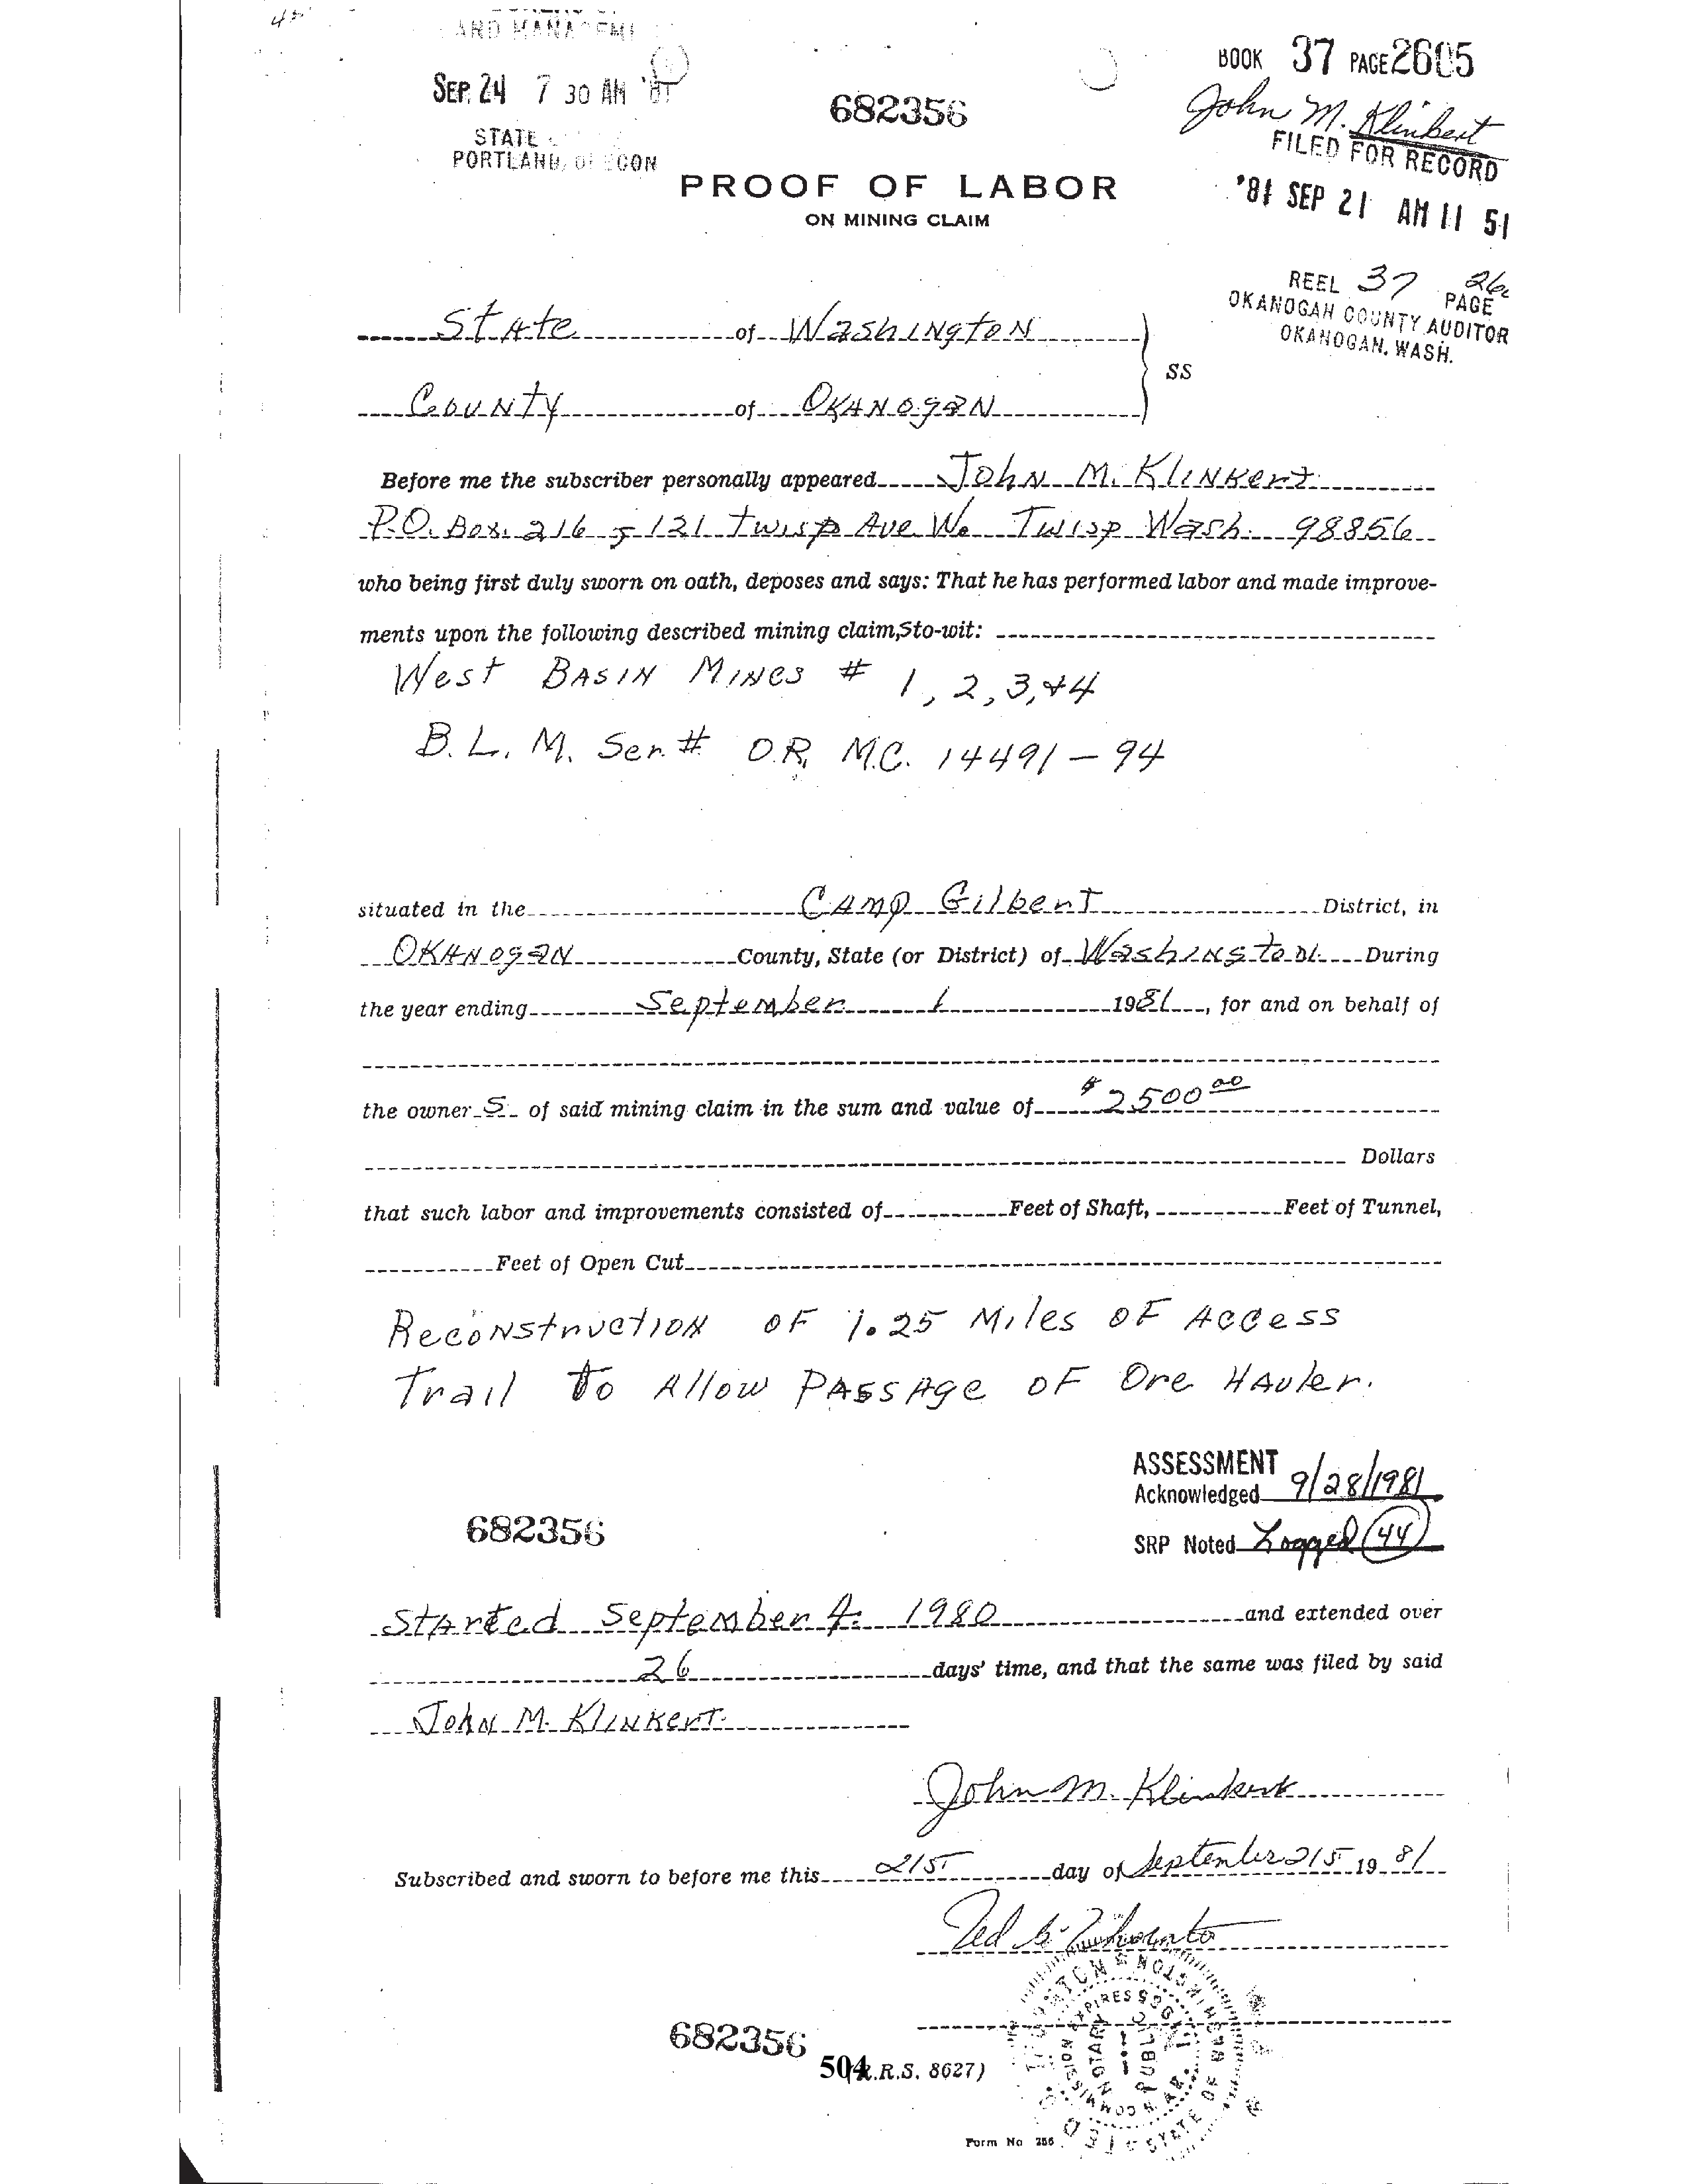 AND MANAGEME
SEP 24 7 30 AM '81
STATE
PORTLAND, OREGON
682356
BOOK 37 PAGE 2605
John M. Klinkert
FILED FOR RECORD
'81 SEP 21 AM 11 51
REEL 37 PAGE 26
OKANOGAN COUNTY AUDITOR
OKANOGAN, WASH.
PROOF OF LABOR
ON MINING CLAIM
State of Washington
County of Okanogan
SS
Before me the subscriber personally appeared John M. Klinkert
P.O. Box. 216 121 Twisp Ave W. Twisp Wash. 98856
who being first duly sworn on oath, deposes and says: That he has performed labor and made improve-
ments upon the following described mining claim,S to-wit:
West Basin Mines # 1, 2, 3, +4
B.L.M. Ser.# O.R. M.C. 14491 - 94
situated in the Camp Gilbert District, in
Okanogan County, State (or District) of Washington During
the year ending September 1 1981, for and on behalf of
the owner S of said mining claim in the sum and value of $ 2500 00
Dollars
that such labor and improvements consisted of Feet of Shaft, Feet of Tunnel,
Feet of Open Cut
Reconstruction of 1.25 Miles of Access
Trail to Allow Passage of Ore Hauler.
ASSESSMENT
Acknowledged 9/28/1981
SRP Noted Logged 44
682356
Started September 4. 1980 and extended over
26 days' time, and that the same was filed by said
John M. Klinkert
John M. Klinkert
Subscribed and sworn to before me this 21st day of September 21st 1981
Ted
682356
504 .R.S. 8627)
COMMISSION EXPIRES
NOTARY PUBLIC
STATE OF WASHINGTON
Form No 256